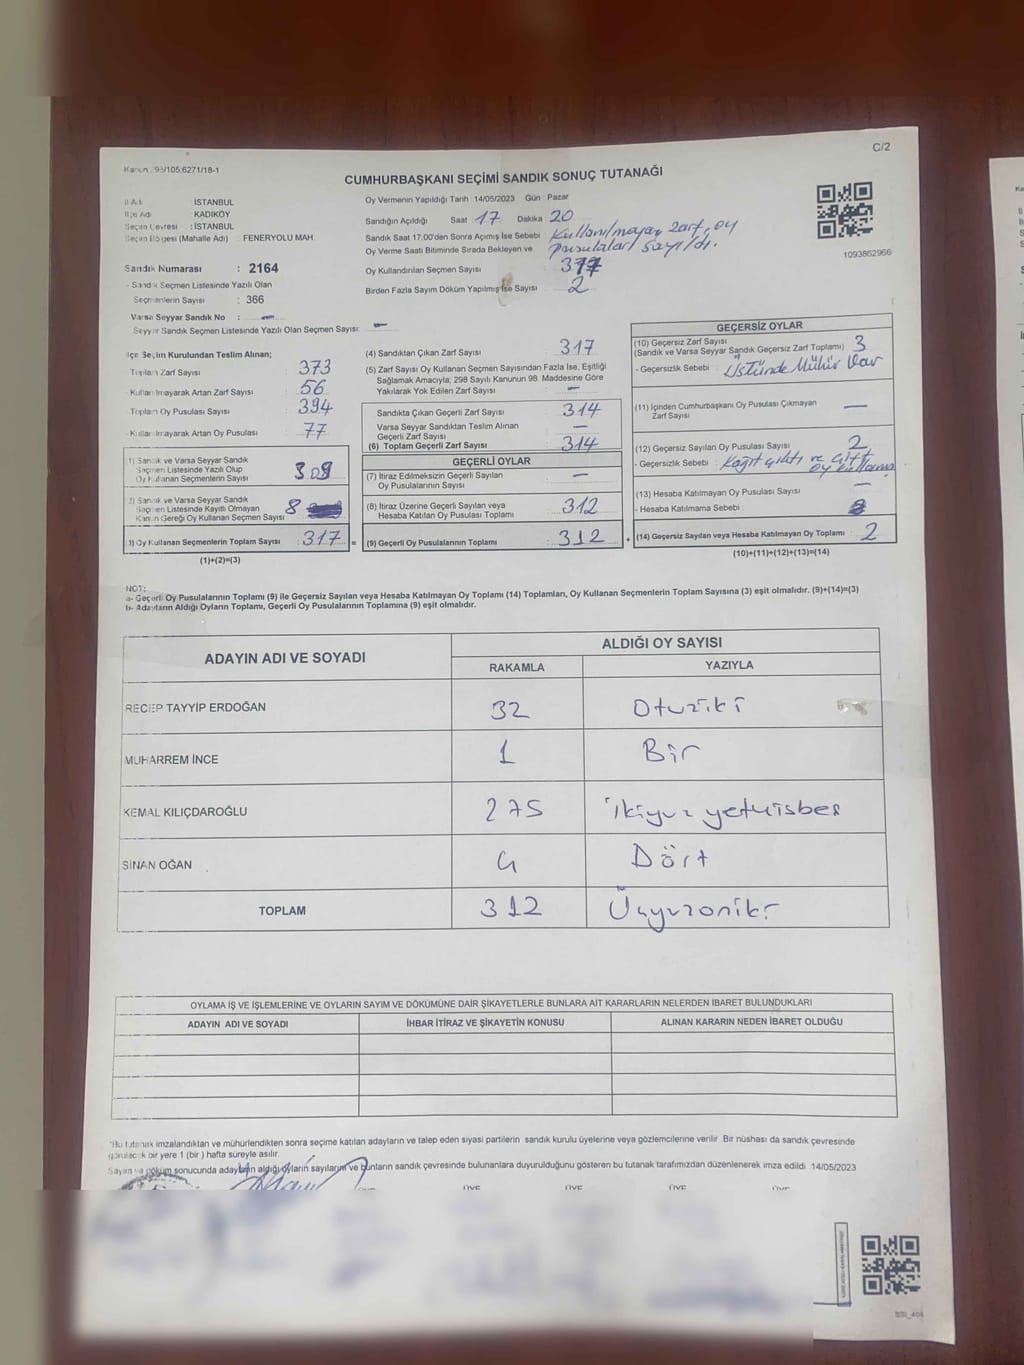 C/2
Kanun : 98/105;6271/18-1
CUMHURBAŞKANI SEÇİMİ SANDIK SONUÇ TUTANAĞI
İl Adı : İSTANBUL
İlçe Adı : KADIKÖY
Seçim Çevresi : İSTANBUL
Seçim Bölgesi (Mahalle Adı) FENERYOLU MAH.
Sandık Numarası : 2164
- Sandık Seçmen Listesinde Yazılı Olan
Seçmenlerin Sayısı : 366
Varsa Seyyar Sandık No : —
Seyyar Sandık Seçmen Listesinde Yazılı Olan Seçmen Sayısı: —
Oy Vermenin Yapıldığı Tarih : 14/05/2023 Gün : Pazar
Sandığın Açıldığı Saat 17 Dakika : 20
Sandık Saat 17:00'den Sonra Açılmış İse Sebebi Kullanılmayan zarf, oy
pusulaları sayıldı.
Oy Verme Saati Bitiminde Sırada Bekleyen ve
Oy Kullandırılan Seçmen Sayısı
Birden Fazla Sayım Döküm Yapılmış İse Sayısı 2
1093862966
İlçe Seçim Kurulundan Teslim Alınan;
Toplam Zarf Sayısı : 373
- Kullanılmayarak Artan Zarf Sayısı : 56
Toplam Oy Pusulası Sayısı : 394
- Kullanılmayarak Artan Oy Pusulası : 77
1) Sandık ve Varsa Seyyar Sandık
Seçmen Listesinde Yazılı Olup
Oy Kullanan Seçmenlerin Sayısı : 309
2) Sandık ve Varsa Seyyar Sandık
Seçmen Listesinde Kayıtlı Olmayan
Kanun Gereği Oy Kullanan Seçmen Sayısı : 8
3) Oy Kullanan Seçmenlerin Toplam Sayısı : 317 =
(1)+(2)=(3)
(4) Sandıktan Çıkan Zarf Sayısı : 317
(5) Zarf Sayısı Oy Kullanan Seçmen Sayısından Fazla İse, Eşitliği
Sağlamak Amacıyla, 298 Sayılı Kanunun 98. Maddesine Göre
Yakılarak Yok Edilen Zarf Sayısı : —
Sandıkta Çıkan Geçerli Zarf Sayısı : 314
Varsa Seyyar Sandıktan Teslim Alınan
Geçerli Zarf Sayısı : —
(6) Toplam Geçerli Zarf Sayısı : 314
GEÇERLİ OYLAR
(7) İtiraz Edilmeksizin Geçerli Sayılan
Oy Pusulalarının Sayısı : —
(8) İtiraz Üzerine Geçerli Sayılan veya
Hesaba Katılan Oy Pusulası Toplamı : 312
(9) Geçerli Oy Pusulalarının Toplamı : 312 +
GEÇERSİZ OYLAR
(10) Geçersiz Zarf Sayısı
(Sandık ve Varsa Seyyar Sandık Geçersiz Zarf Toplamı) : 3
- Geçersizlik Sebebi : Üstünde Mühür Var
(11) İçinden Cumhurbaşkanı Oy Pusulası Çıkmayan
Zarf Sayısı : —
(12) Geçersiz Sayılan Oy Pusulası Sayısı : 2
- Geçersizlik Sebebi : Kağıt çıktı ve çift
oy kullanma
(13) Hesaba Katılmayan Oy Pusulası Sayısı : —
- Hesaba Katılmama Sebebi :
(14) Geçersiz Sayılan veya Hesaba Katılmayan Oy Toplamı : 2
(10)+(11)+(12)+(13)=(14)
NOT:
a- Geçerli Oy Pusulalarının Toplamı (9) ile Geçersiz Sayılan veya Hesaba Katılmayan Oy Toplamı (14) Toplamları, Oy Kullanan Seçmenlerin Toplam Sayısına (3) eşit olmalıdır. (9)+(14)=(3)
b- Adayların Aldığı Oyların Toplamı, Geçerli Oy Pusulalarının Toplamına (9) eşit olmalıdır.
ADAYIN ADI VE SOYADI ALDIĞI OY SAYISI
RAKAMLA YAZIYLA
RECEP TAYYİP ERDOĞAN 32 Otuziki
MUHARREM İNCE 1 Bir
KEMAL KILIÇDAROĞLU 275 İkiyüz yetmişbeş
SİNAN OĞAN 4 Dört
TOPLAM 312 Üçyüzoniki
OYLAMA İŞ VE İŞLEMLERİNE VE OYLARIN SAYIM VE DÖKÜMÜNE DAİR ŞİKAYETLERLE BUNLARA AİT KARARLARIN NELERDEN İBARET BULUNDUKLARI
ADAYIN ADI VE SOYADI İHBAR İTİRAZ VE ŞİKAYETİN KONUSU ALINAN KARARIN NEDEN İBARET OLDUĞU
*Bu tutanak imzalandıktan ve mühürlendikten sonra seçime katılan adayların ve talep eden siyasi partilerin sandık kurulu üyelerine veya gözlemcilerine verilir. Bir nüshası da sandık çevresinde
görülecek bir yere 1 (bir) hafta süreyle asılır.
Sayım ve döküm sonucunda adayların aldığı oyların sayılarını ve bunların sandık çevresinde bulunanlara duyurulduğunu gösteren bu tutanak tarafımızdan düzenlenerek imza edildi. 14/05/2023
ÜYE ÜYE ÜYE